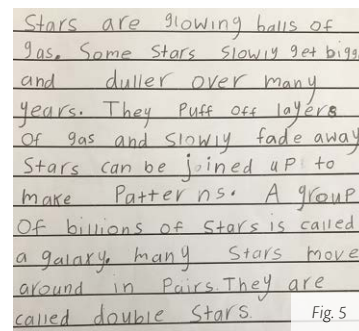 Stars are glowing balls of
gas. Some Stars Slowly get bigg
and duller over many
years. They Puff off layers
Of gas and Slowly fade away
Stars can be joined uP to
make Patterns. A group
Of billions of Stars is called
a galaxy. many Stars move
around in Pairs. They are
called double Stars.
Fig. 5